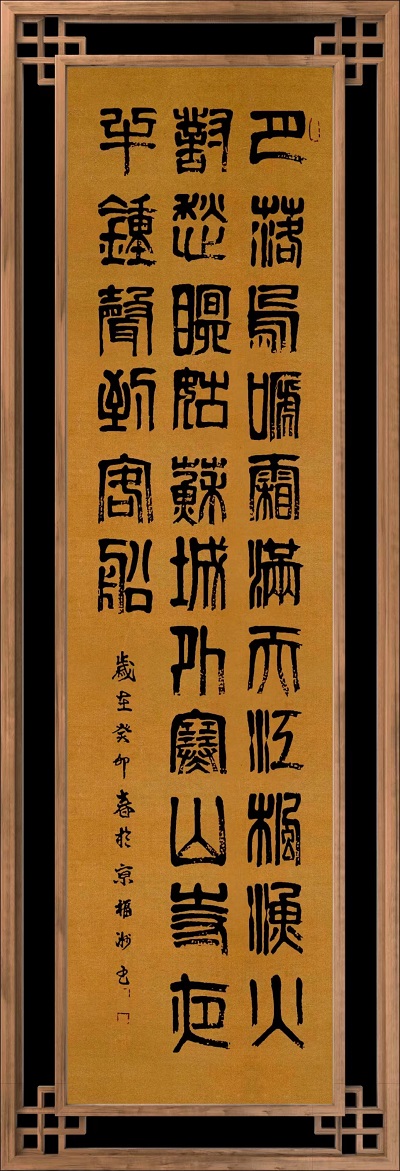 月落烏啼霜滿天江楓漁火
對愁眠姑蘇城外寒山寺夜
半鍾聲到客船
歲在癸卯春於京福洲書